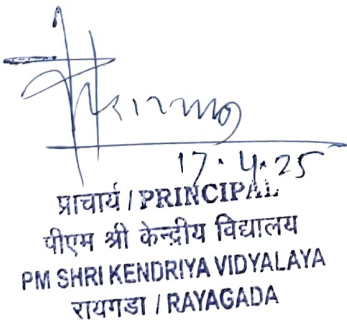 17.4.25
प्राचार्य / PRINCIPAL
पीएम श्री केन्द्रीय विद्यालय
PM SHRI KENDRIYA VIDYALAYA
रायगडा / RAYAGADA